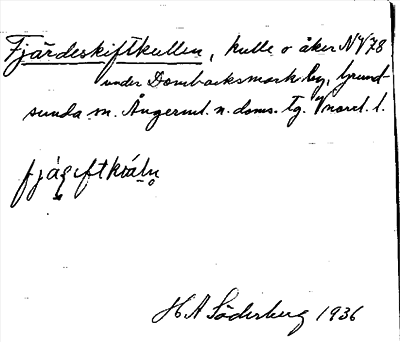 Fjärdeskiftkullen, kulle o åker NV78
under Dombäcksmark by, Grund-
sunda sn. Ångerml. n. doms. tg. V norrl. l.
H A Söderberg 1936